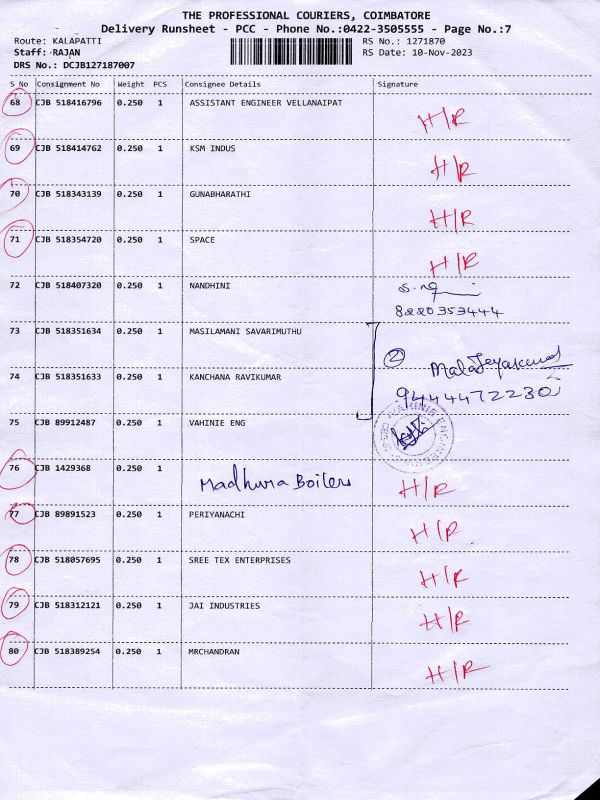 THE PROFESSIONAL COURIERS, COIMBATORE
Delivery Runsheet - PCC - Phone No.:0422-3505555 - Page No.:7
Route: KALAPATTI RS No.: 1271870
Staff: RAJAN RS Date: 10-Nov-2023
DRS No.: DCJB127187007
S No Consignment No Weight PCS Consignee Details Signature
68 CJB 518416796 0.250 1 ASSISTANT ENGINEER VELLANAIPAT H/R
69 CJB 518414762 0.250 1 KSM INDUS H/R
70 CJB 518343139 0.250 1 GUNABHARATHI H/R
71 CJB 518354720 0.250 1 SPACE H/R
72 CJB 518407320 0.250 1 NANDHINI
8220353444
73 CJB 518351634 0.250 1 MASILAMANI SAVARIMUTHU
2
74 CJB 518351633 0.250 1 KANCHANA RAVIKUMAR
9444472230
75 CJB 89912487 0.250 1 VAHINIE ENG
76 CJB 1429368 0.250 1 Madhura Boilers H/R
77 CJB 89891523 0.250 1 PERIYANACHI H/R
78 CJB 518057695 0.250 1 SREE TEX ENTERPRISES H/R
79 CJB 518312121 0.250 1 JAI INDUSTRIES H/R
80 CJB 518389254 0.250 1 MRCHANDRAN H/R